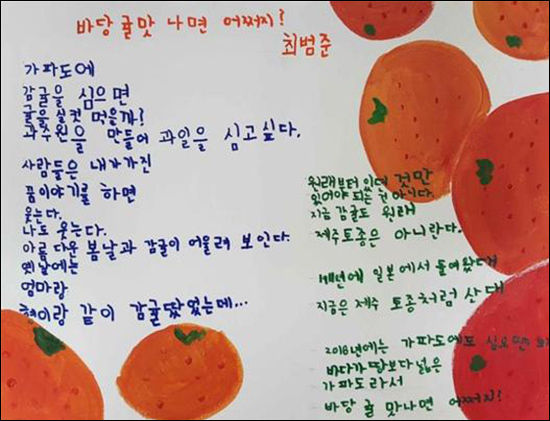 바당 귤맛 나면 어쩌지?
최범준
가파도에
감귤을 심으면
귤을 실컷 먹을까?
과수원을 만들어 과일을 심고싶다.
사람들은 내가가진
꿈이야기를 하면
웃는다.
나도 웃는다.
아름다운 봄날과 감귤이 어울려 보인다.
옛날에는
엄마랑
형이랑 같이 감귤땄었는데...
원래부터 있던 것만
있어야 되는 건 아니다.
지금 감귤도 원래
제주토종은 아니란다.
년에 일본에서 들여왔대
지금은 제주 토종처럼 산대
2018년에는 가파도에도 심으면
바다가 땅보다 넓은
가파도라서
바당 귤 맛나면 어쩌지?